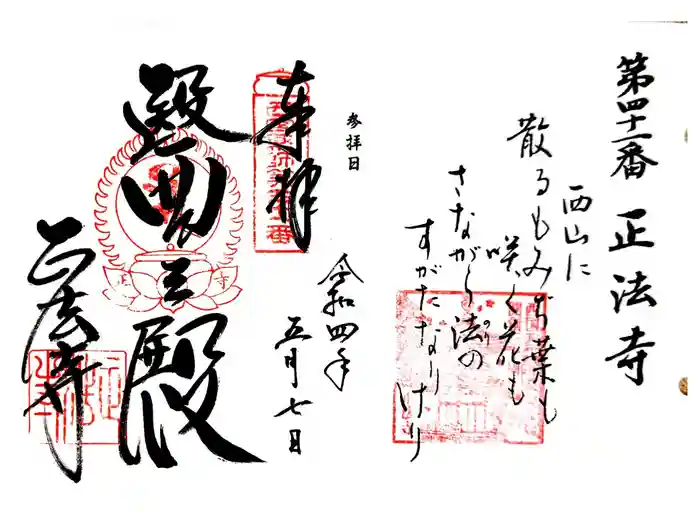 第四十一番 正法寺
西山に
散るもみぢ葉も
咲く花も
さながら法の
のり
すがたなりけり
参拝日
令和四年
五月七日
奉拝
正法寺